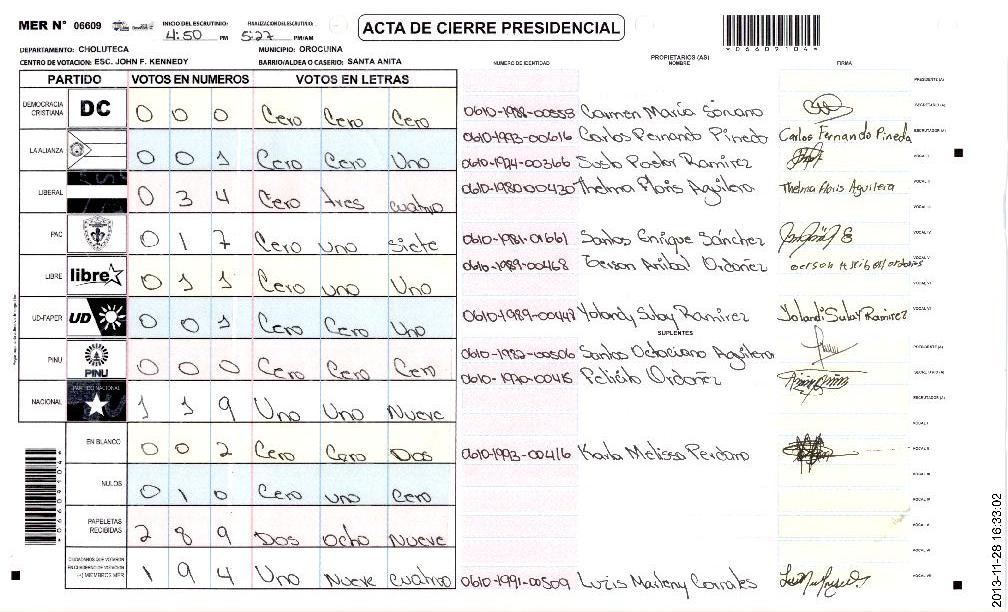 MER N° 06609 INICIO DEL ESCRUTINIO: 4:50 PM FINALIZACION DEL ESCRUTINIO: 5:27 PM/AM ACTA DE CIERRE PRESIDENCIAL
*06609104*
DEPARTAMENTO: CHOLUTECA MUNICIPIO: OROCUINA
CENTRO DE VOTACION: ESC. JOHN F. KENNEDY BARRIO/ALDEA O CASERIO: SANTA ANITA
PARTIDO VOTOS EN NUMEROS VOTOS EN LETRAS
DEMOCRACIA CRISTIANA DC 0 0 0 Cero Cero Cero
LA ALIANZA 0 0 1 Cero Cero Uno
LIBERAL 0 3 4 Cero tres cuatro
PAC 0 1 7 Cero uno siete
LIBRE libre 0 1 1 Cero uno Uno
UD-FAPER UD 0 0 1 Cero Cero Uno
PINU PINU 0 0 0 Cero Cero Cero
NACIONAL PARTIDO NACIONAL 1 1 9 Uno Uno Nueve
EN BLANCO 0 0 2 Cero Cero Dos
NULOS 0 1 0 Cero uno Cero
PAPELETAS RECIBIDAS 2 8 9 Dos ocho Nueve
CIUDADANOS QUE VOTARON EN CUADERNO DE VOTACION (+) MIEMBROS MER 1 9 4 Uno Nueve cuatro
NUMERO DE IDENTIDAD PROPIETARIOS (AS) NOMBRE FIRMA
PRESIDENTE(A)
0610-1988-00553 Carmen María Soriano SECRETARIO(A)
0610-1993-00616 Carlos Fernando Pineda Carlos Fernando Pineda ESCRUTADOR(A)
0610-1974-00366 Santos Pastor Ramirez VOCAL I
0610-1980-00430 Thelma Floris Aguilera Thelma Floris Aguilera VOCAL II
VOCAL III
0610-1981-01661 Santos Enrique Sánchez VOCAL IV
0610-1989-00468 Gerson Anibal Ordoñez VOCAL V
VOCAL VI
0610-1989-00447 Yolandy Sulay Ramirez Yolandi Sulay Ramirez VOCAL VII
SUPLENTES
0610-1982-00506 Santos Octaviano Aguilera PRESIDENTE(A)
0610-1970-00415 Felicito Ordoñez SECRETARIO(A)
ESCRUTADOR(A)
VOCAL I
0610-1993-00416 Karla Melissa Perdomo VOCAL II
VOCAL III
VOCAL IV
VOCAL V
VOCAL VI
0610-1991-00509 Marleny Corrales VOCAL VII
*06609104*
2013-11-28 16:33:02